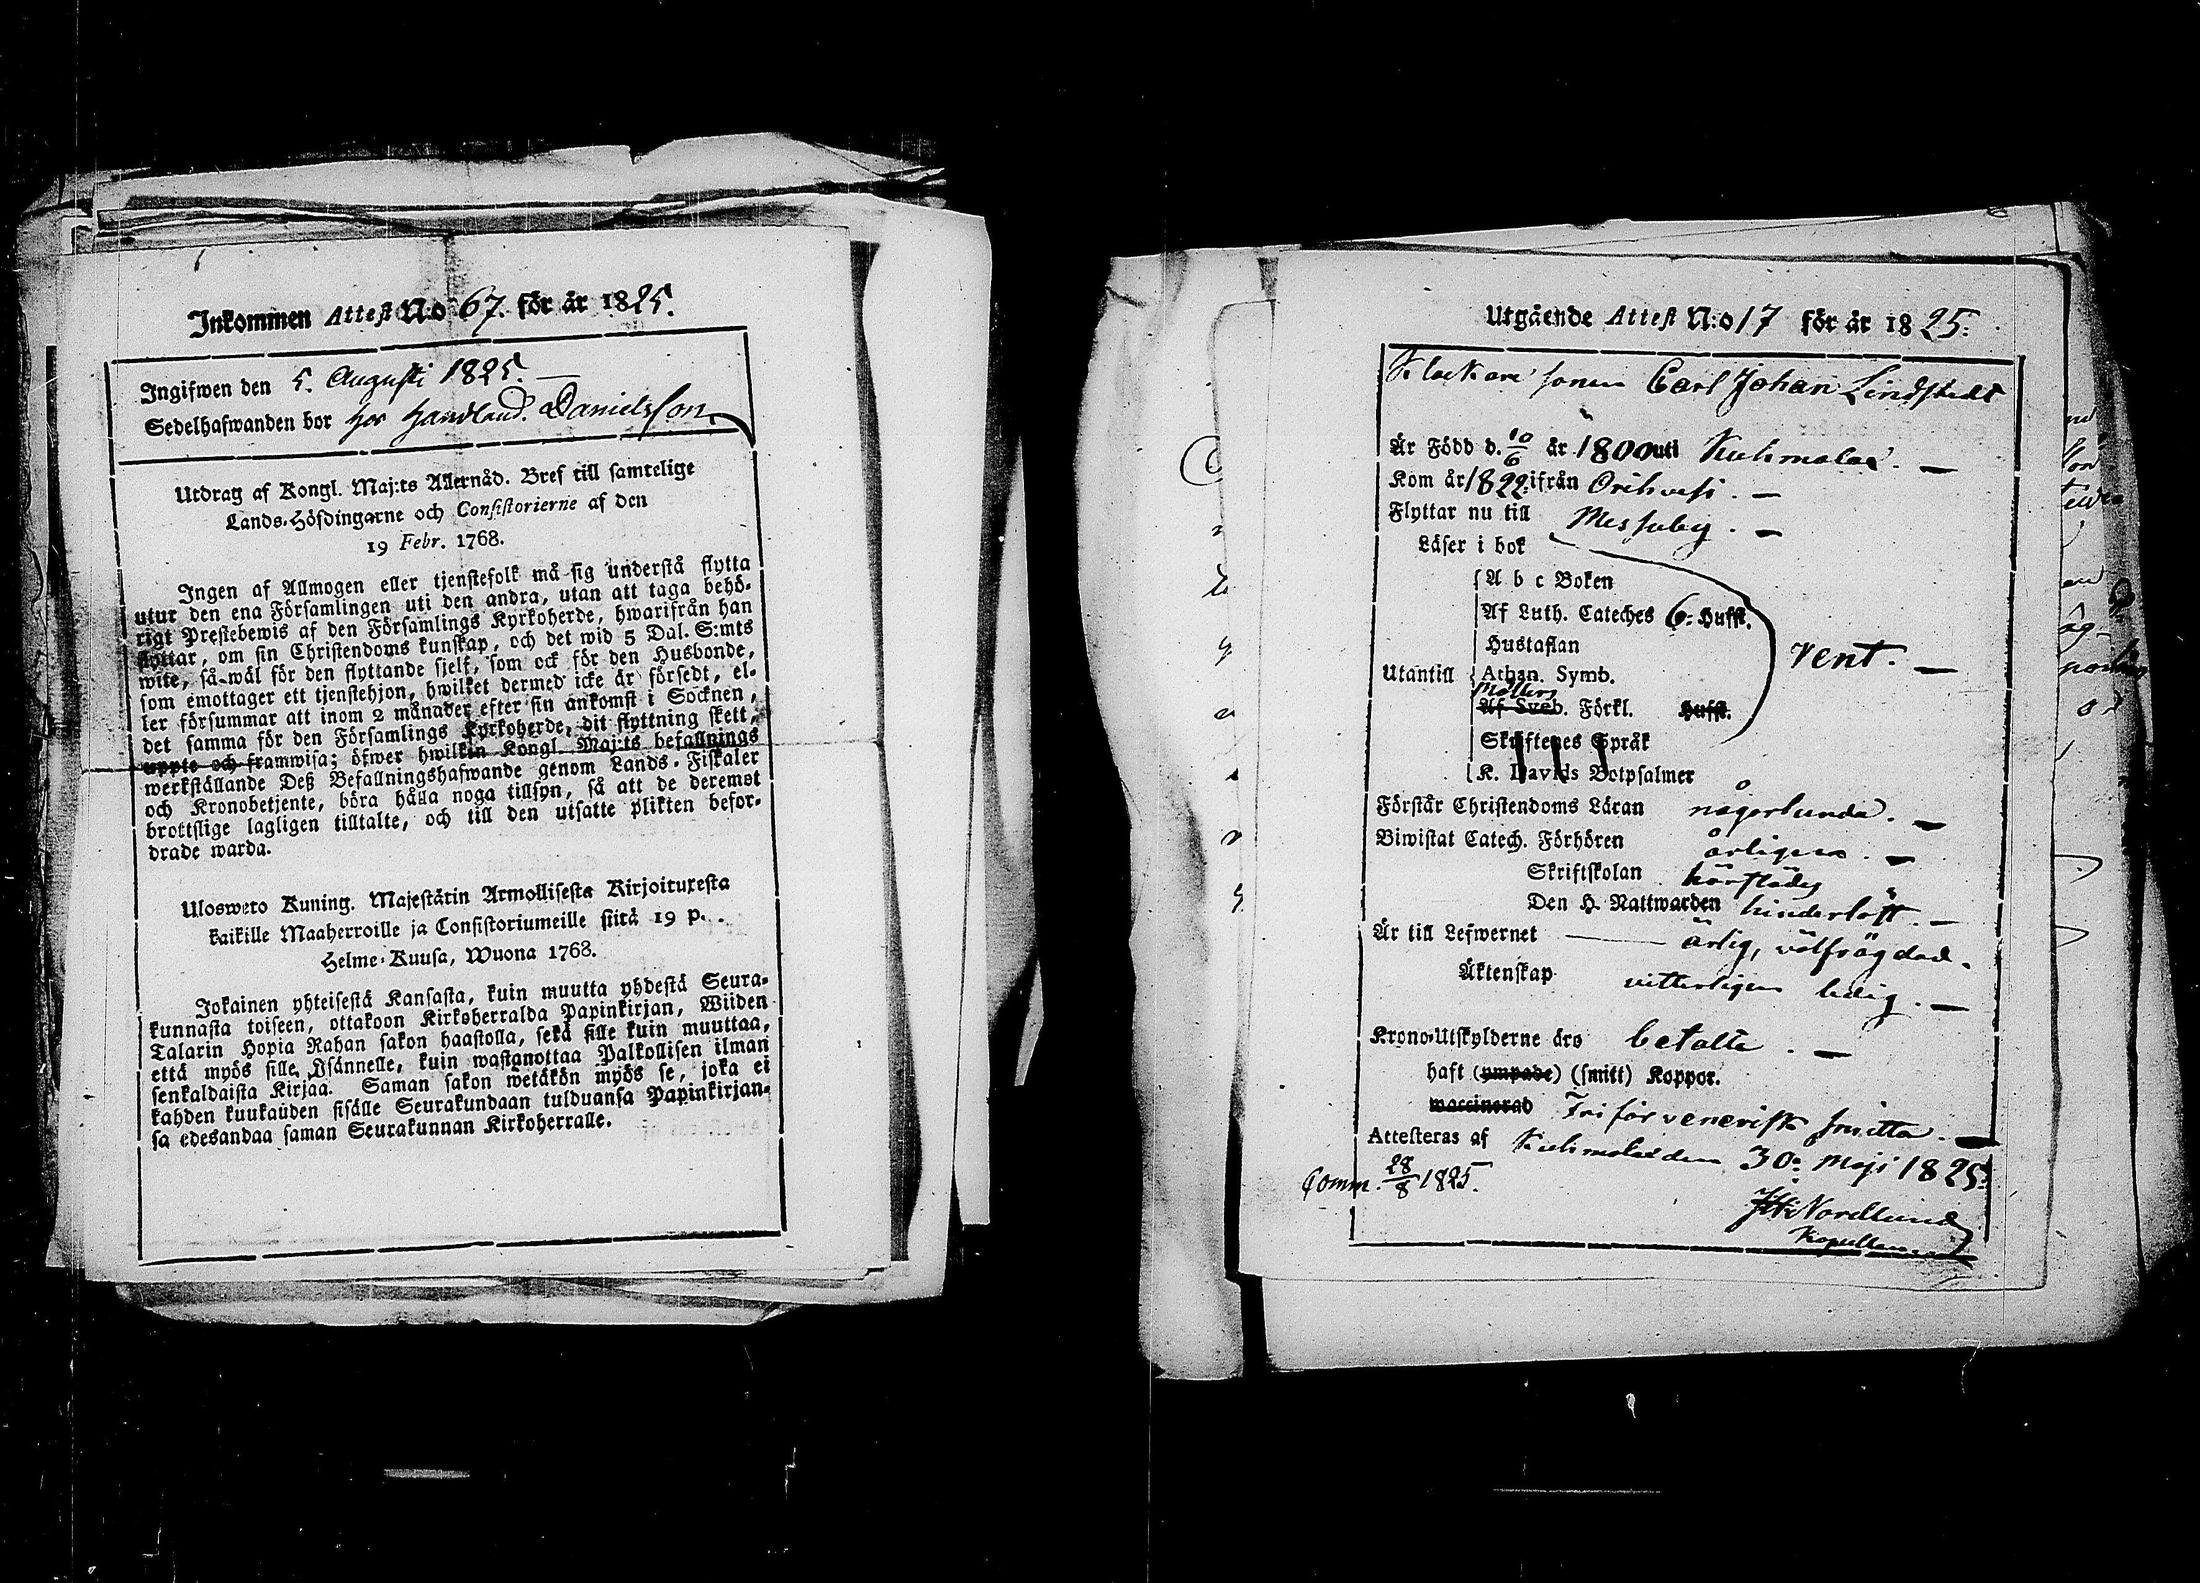 Inkommen Attest N:o 67. för år 1825.
Ingifwen den 5. Augusti 1825. —
Sedelhafwanden bor hos Handland. Danielsson
Utdrag af Kongl. Maj:ts Allernåd. Bref till samtelige
Lands-Höfdingarne och Consistorierne af den
19 Febr. 1768.
Ingen af Allmogen eller tjenstefolk må sig understå flytta
utur den ena Församlingen uti den andra, utan att taga behö-
rigt Prestebewis af den Församlings Kyrkoherde, hwarifrån han
flyttar, om sin Christendoms kunskap, och det wid 5 Dal. S:mts
wite, så wäl för den flyttande sjelf, som ock för den Husbonde,
som emottager ett tjenstehjon, hwilket dermed icke är försedt, el-
ler försummar att inom 2 månader efter sin ankomst i Socknen,
det samma för den Församlings Kyrkoherde, dit flyttning skett,
uppte och framwisa; öfwer hwilkin Kongl. Maj:ts befallnings
werkställande Deß Befallningshafwande genom Lands-Fiskaler
och Kronobetjente, böra hålla noga tillsyn, så att de deremot
brottslige lagligen tilltalte, och till den utsatte plikten befor-
drade warda.
Ulosweto Kuning. Majestätin Armollisesta Kirjoituxesta
kaikille Maaherroille ja Consistoriumeille siitä 19 p.
Helme-Kuusa, Wuona 1768.
Jokainen yhteisestä Kansasta, kuin muutta yhdestä Seura-
kunnasta toiseen, ottakoon Kirkoherralda Papinkirjan, Wiiden
Talarin Hopia Rahan sakon haastolla, sekä sille kuin muuttaa,
että myös sille Isännelle, kuin wastanottaa Palkollisen ilman
senkaldaista Kirjaa. Saman sakon wetäkön myös se, joka ei
kahden kuukauden sisälle Seurakundaan tulduansa Papinkirjan-
sa edesandaa saman Seurakunnan Kirkoherralle.
Utgående Attest N:o 17 för år 1825.
Klockare sonen Carl Johan Lindstedt
Är Född d. 10/6 år 1800 uti Kuhmalax. —
Kom år 1822 ifrån Orihvesi. —
Flyttar nu till Messuby. —
Läser i bok
A b c Boken
Af Luth. Cateches 6: Hufst.
Hustaflan
rent. —
Utantill Athan. Symb.
Möllers
Af Sveb. Förkl. Hufst.
Skriftenes Språk
K. Davids Botpsalmer
Förstår Christendoms Läran någorlunda. —
Biwistat Catech. Förhören årligen. —
Skriftskolan härstädes
Den H. Nattwarden hinderlöst. —
Är till Lefwernet — ärlig, välfrägdad.
Äktenskap vitterligen ledig. —
Krono-Utskylderne äro betalte. —
haft (ympade) (smitt) Koppor.
waccinerad Fri för venerisk smitta. —
Attesteras af Kuhmalax den 30: Maji 1825.
Comm. 28/8 1825.
Nordlund
Kapellan